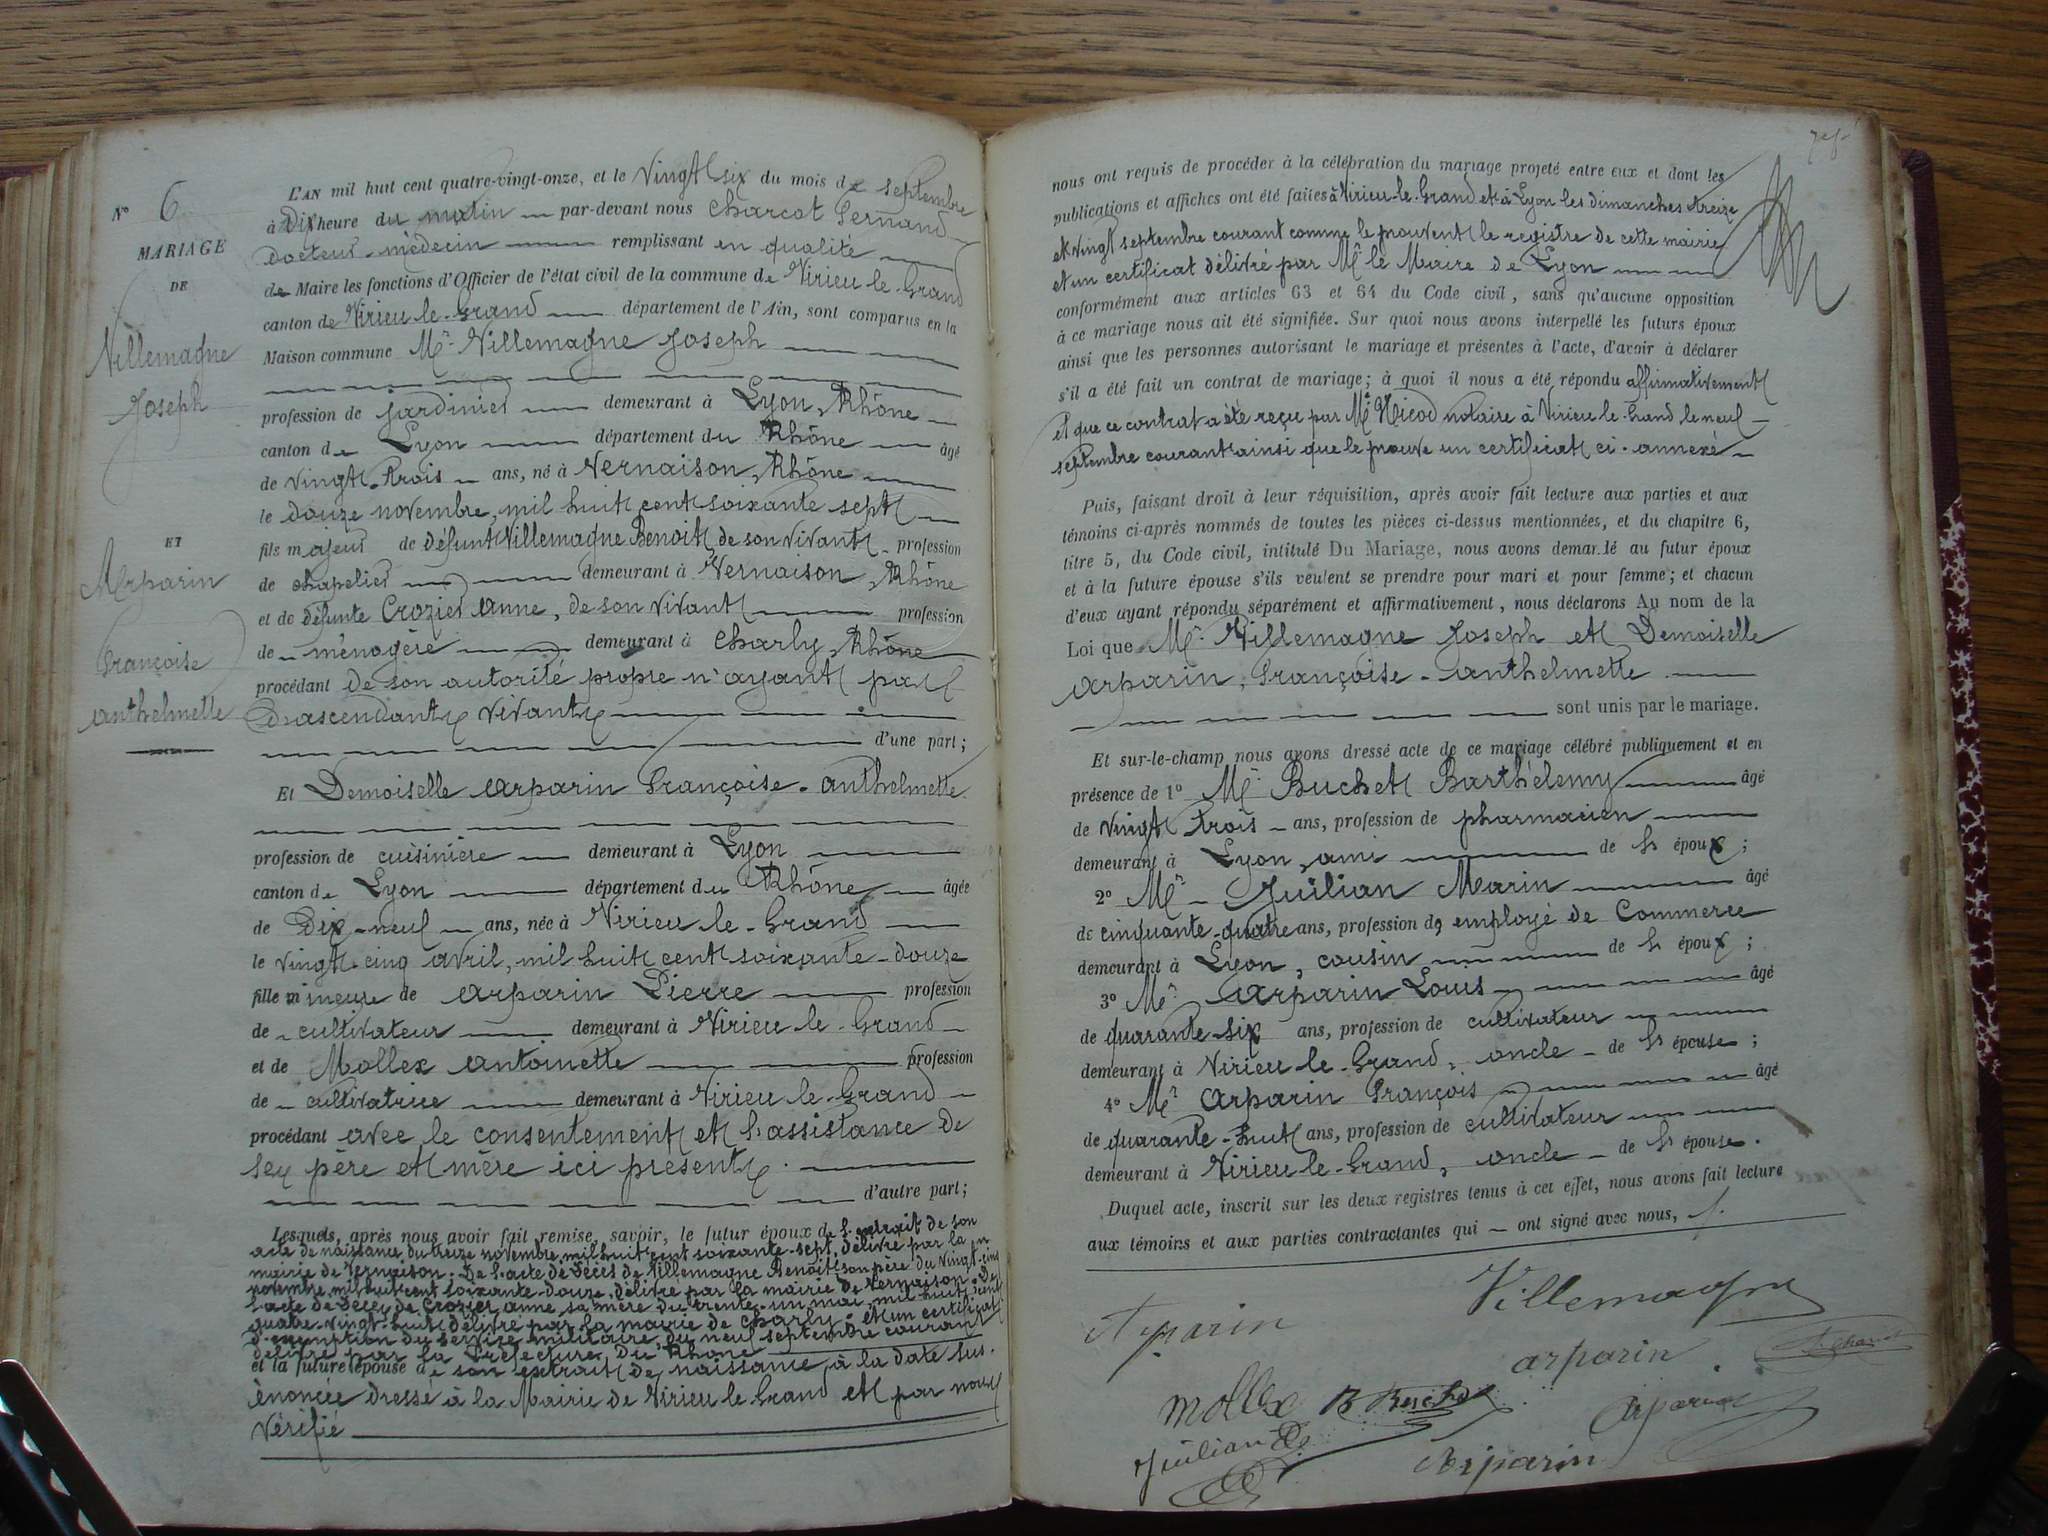 N° 6
MARIAGE
DE
Villemagne
Joseph
ET
Arparin
Françoise
Anthelmette
L'AN mil huit cent quatre-vingt-onze, et le Vingt six du mois de septembre
à Dix heure du matin par-devant nous Charcot Fernand
Docteur-médecin remplissant en qualité
de Maire les fonctions d'Officier de l'état civil de la commune de Virieu-le-Grand
canton de Virieu-le-Grand département de l'Ain, sont comparus en la
Maison commune Mr Villemagne Joseph
profession de jardinier demeurant à Lyon, Rhône
canton de Lyon département du Rhône âgé
de vingt-trois ans, né à Vernaison, Rhône
le douze novembre, mil huit cent soixante sept
fils majeur de défunt Villemagne Benoit de son vivant profession
de chapelier demeurant à Vernaison, Rhône
et de défunte Crozier Anne, de son vivant profession
de ménagère demeurant à Charly, Rhône
procédant de son autorité propre n'ayant pas
d'ascendants vivants
d'une part;
Et Demoiselle Arparin Françoise-Anthelmette
profession de cuisinière demeurant à Lyon
canton de Lyon département du Rhône âgée
de Dix-neuf ans, née à Virieu-le-Grand
le vingt-cinq avril, mil huit cent soixante-douze
fille mineure de Arparin Pierre profession
de cultivateur demeurant à Virieu-le-Grand
et de Mollex Antoinette profession
de cultivatrice demeurant à Virieu-le-Grand
procédant avec le consentement et l'assistance de
ses père et mère ici présents.
d'autre part;
Lesquels, après nous avoir fait remise, savoir, le futur époux de l'extrait de son
acte de naissance du treize novembre mil huit cent soixante-sept, délivré par la
mairie de Vernaison. De l'acte de décès de Villemagne Benoit son père du vingt-cinq
novembre mil huit cent soixante-douze, délivré par la mairie de Vernaison. De
l'acte de décès de Crozier Anne sa mère du trente-un mai, mil huit cent
quatre-vingt-huit délivré par la mairie de Charly. Et un certificat
d'exemption du service militaire du neuf septembre courant
délivré par la Préfecture du Rhône
et la future épouse de son extrait de naissance à la date sus-
énoncée dressé à la Mairie de Virieu le Grand et par nous
vérifié
nous ont requis de procéder à la célébration du mariage projeté entre eux et dont les
publications et affiches ont été faites à Virieu-le-Grand et à Lyon les dimanches treize
et vingt septembre courant comme le prouvent le registre de cette mairie
et un certificat délivré par Mr le Maire de Lyon
conformément aux articles 63 et 64 du Code civil, sans qu'aucune opposition
à ce mariage nous ait été signifiée. Sur quoi nous avons interpellé les futurs époux
ainsi que les personnes autorisant le mariage et présentes à l'acte, d'avoir à déclarer
s'il a été fait un contrat de mariage; à quoi il nous a été répondu affirmativement
et que ce contrat a été reçu par Me Nicod notaire à Virieu-le-Grand le neuf
septembre courant ainsi que le prouve un certificat ci-annexé
Puis, faisant droit à leur réquisition, après avoir fait lecture aux parties et aux
témoins ci-après nommés de toutes les pièces ci-dessus mentionnées, et du chapitre 6,
titre 5, du Code civil, intitulé Du Mariage, nous avons demandé au futur époux
et à la future épouse s'ils veulent se prendre pour mari et pour femme; et chacun
d'eux ayant répondu séparément et affirmativement, nous déclarons Au nom de la
Loi que Mr Villemagne Joseph et Demoiselle
Arparin, Françoise-Anthelmette
sont unis par le mariage.
Et sur-le-champ nous avons dressé acte de ce mariage célébré publiquement et en
présence de 1° Mr Buchet Barthélemy âgé
de vingt trois ans, profession de pharmacien
demeurant à Lyon, ami de l'époux;
2° Mr Juilian Marin âgé
de cinquante-quatre ans, profession de employé de Commerce
demeurant à Lyon, cousin de l'époux;
3° Mr Arparin Louis âgé
de quarante-six ans, profession de cultivateur
demeurant à Virieu-le-Grand, oncle de l'épouse;
4° Mr Arparin François âgé
de quarante-huit ans, profession de cultivateur
demeurant à Virieu-le-Grand, oncle de l'épouse.
Duquel acte, inscrit sur les deux registres tenus à cet effet, nous avons fait lecture
aux témoins et aux parties contractantes qui ont signé avec nous,
Villemagne
Arparin
arparin
Mollex B Buchet
Arparin
Juilian
Arparin